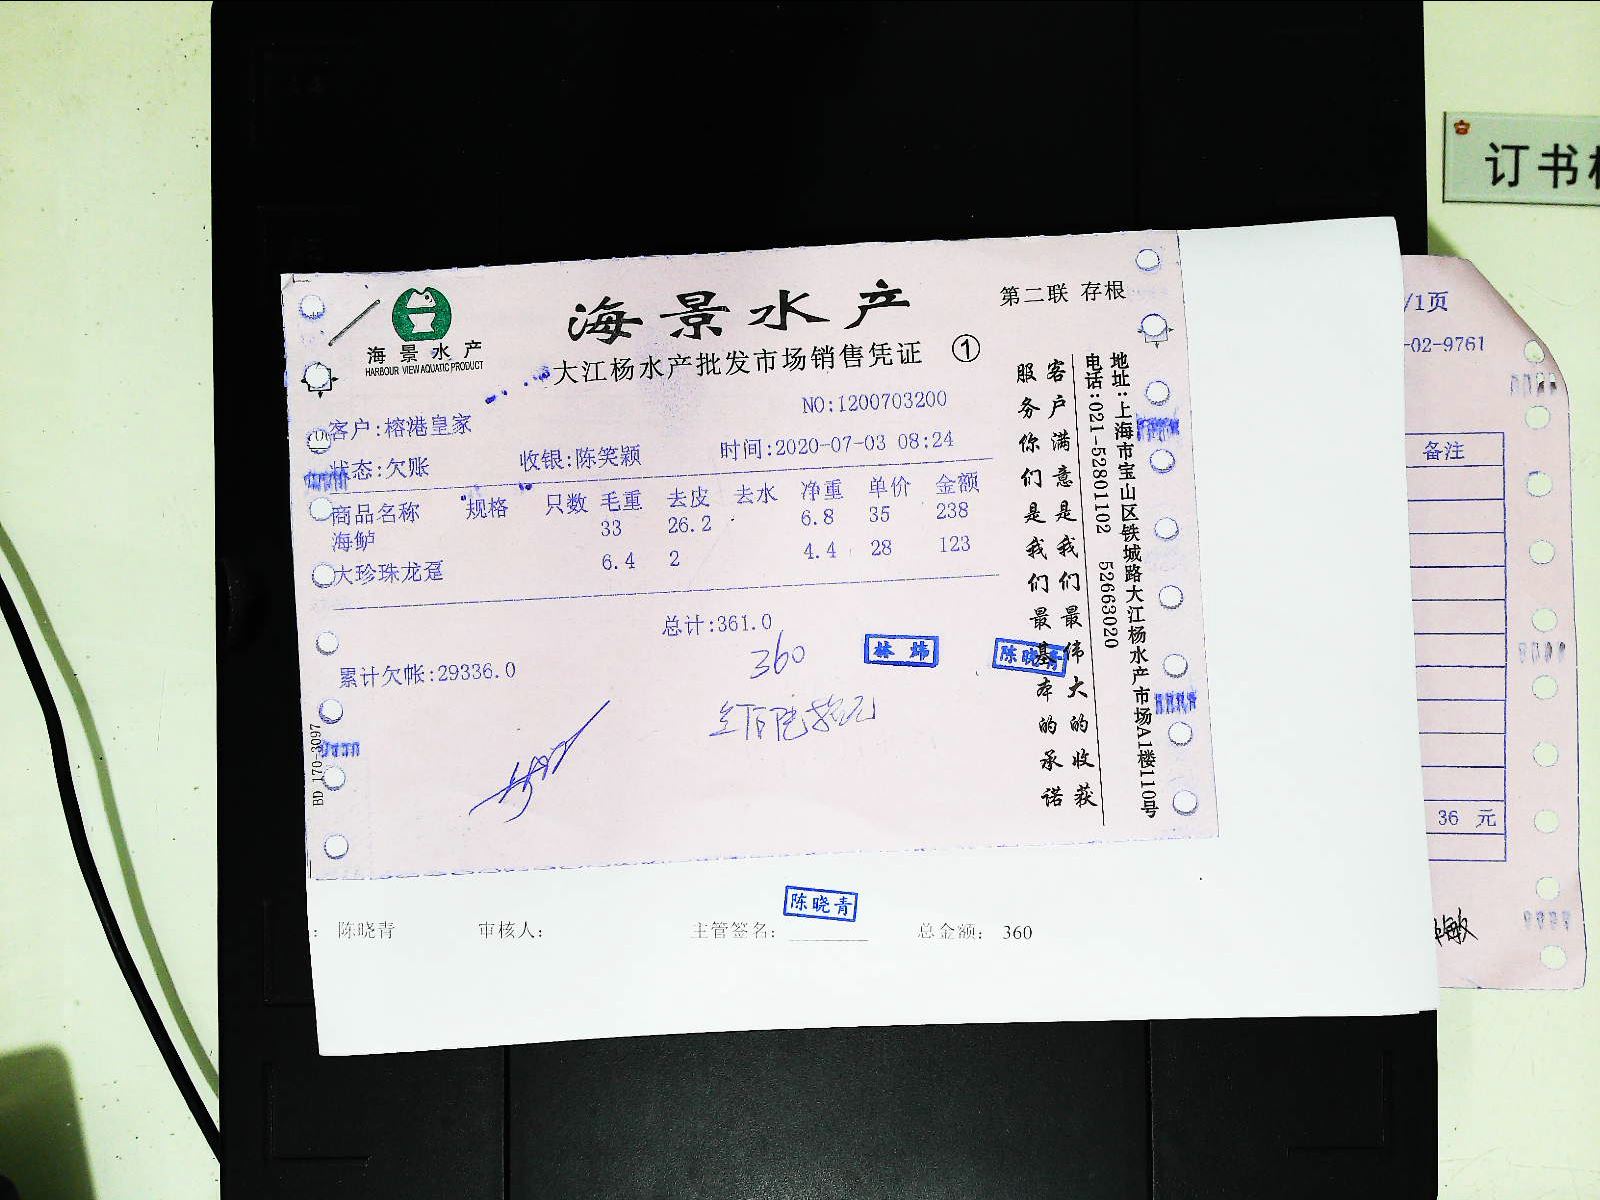 订书
海景水产
HARBOUR VIEW AQUATIC PRODUCT
海景水产
第二联 存根
大江杨水产批发市场销售凭证 ①
NO:1200703200
客户:榕港皇家
状态:欠账 收银:陈笑颖 时间:2020-07-03 08:24
商品名称 规格 只数 毛重 去皮 去水 净重 单价 金额
海鲈 33 26.2 6.8 35 238
大珍珠龙趸 6.4 2 4.4 28 123
总计:361.0
360
林炜
陈晓青
累计欠帐:29336.0
叁佰陆拾元
BD 170-3097
客户满意是我们最伟大的收获
服务你们是我们最基本的承诺
地址:上海市宝山区铁城路大江杨水产市场A1楼110号
电话:021-52801102 52663020
陈晓青
: 陈晓青 审核人: 主管签名: 总金额: 360
/1页
-02-9761
备注
36 元